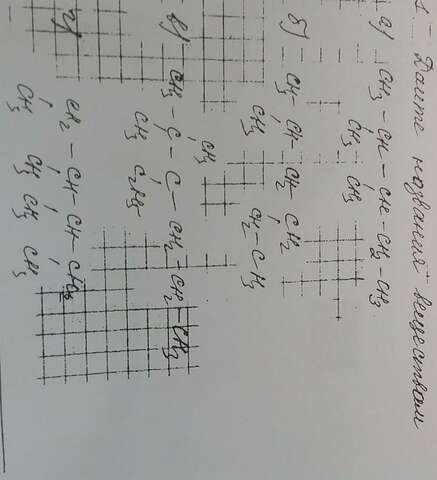 1. Дайте названия веществам
а) CH3 - CH - CH - CH2 - CH3
CH3 CH3
б) CH3 - CH - CH2 - CH2
CH3 CH2 - CH3
CH3
в) CH3 - C - C - CH2 - CH2 - CH3
CH3 C2H5
г) CH2 - CH - CH - CH2
CH3 CH3 CH3 CH3